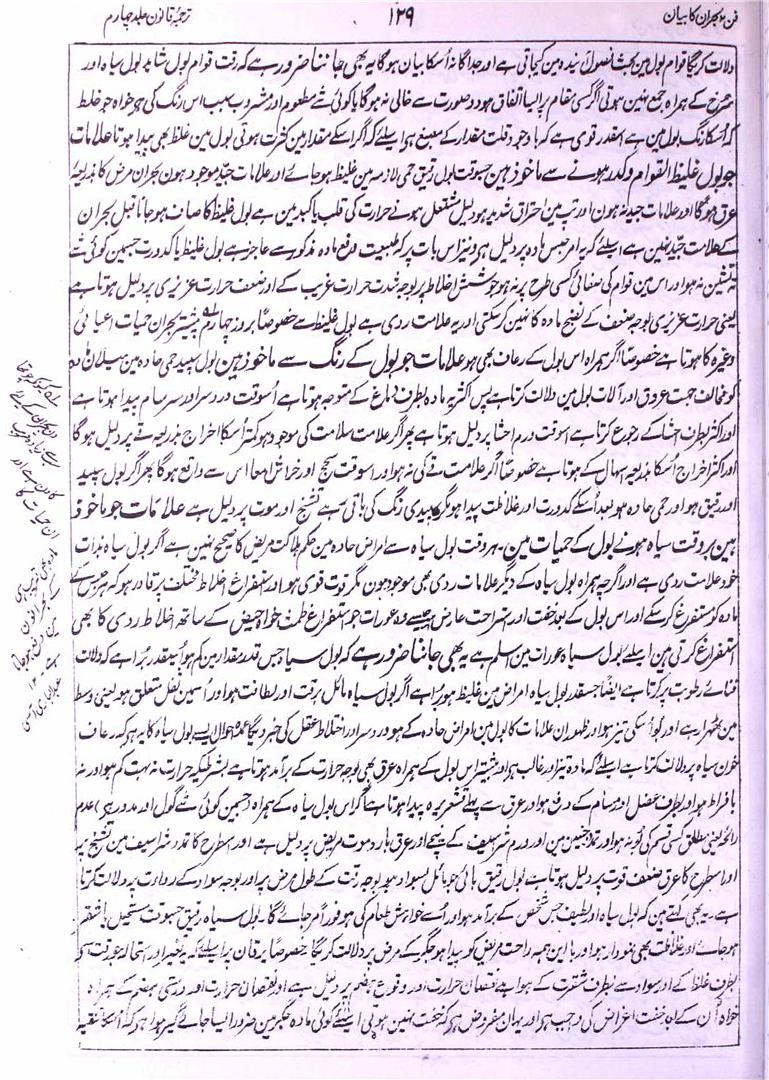 فن ۲ بحران کا بیان ۱۲۹ ترجمۂ قانون جلد چہارم
دلالت کریگا قوام بول مین بحث فصول آیندہ مین کیجاتی ہے اور جداگانہ اُسکا بیان ہوگا یہ بھی جاننا ضرور ہے کہ رقت قوام بول شاید بول سیاہ اور
سرخ کے ہمراہ جمع نہین ہوتی اگر کسی مقام پر ایسا اتفاق ہو دو صورت سے خالی نہ ہوگا یا کوئی شے مطعوم اور مشروب سبب اس رنگ کی ہو خواہ جو خلط
کہ اُسکا رنگ بول مین ہے اسقدر قوی ہے کہ باوجود قلت مقدار کے صبغ ہوا سلیے کہ اگر اسکے مقدار مین کثرت ہوتی بول مین غلظ بھی پیدا ہوتا علامات
جو بول غلیظ القوام و کدر ہونے سے ماخوذ ہین جسوقت بول رقیق حمی لازمہ مین غلیظ ہو جائے اور علامات جید موجود ہون بحران مرض کا بذریعہ
عرق ہوگا اور علامات جید نہ ہون اور تپ مین احتراق شدید ہو دلیل مشتعل ہونے حرارت کی قلب یا کبد مین ہے بول غلیظ کا صاف ہو جانا قبل بحران
کے علامت جید نہین ہے اسلیے کہ یہ امر حبس مادہ پر دلیل ہی و نیز اس بات پر کہ طبیعت دفع مادہ مذکور سے عاجز ہے بول غلیظ با کدورت جسمین کوئی شے
تہ نشین نہ ہو اور اس مین قوام کی صفائی کسی طرح پر نہ ہو جوشش اخلاط پر بوجہ شدت حرارت غریب کے اور ضعف حرارت غریزی پر دلیل ہوتا ہے
یعنی حرارت غریزی بوجہ ضعف کے نضج مادہ کا نہین کر سکتی اور یہ علامت ردی ہے بول غلیظ سے خصوصاً بروز چہارم پیشتر بحران حمیات اعیائی
وغیرہ کا ہوتا ہے خصوصاً اگر ہمراہ اس بول کے رعاف بھی ہو علامات جو بول کے رنگ سے ماخوذ ہین بول سپید حمی حادہ مین میلان مادہ
کو مخالف جہت عروق اور آلات بول مین دلالت کرتا ہے پس اکثر یہ مادہ بطرف دماغ کے متوجہ ہوتا ہے اُسوقت درد سر اور سرسام پیدا ہوتا ہے
اور اکثر بطرف احشا کے رجوع کرتا ہے اسوقت ورم احشا پر دلیل ہوتا ہے پھر اگر علامت سلامت کی موجود ہو کثرت اُسکا اخراج بذریعہ قے پر دلیل ہوگا
اور اکثر اخراج اُسکا بذریعہ اسہال کے ہوتا ہے خصوصاً اگر علامت قے کی نہ ہو اور اسوقت سحج اور خراش امعا اس سے واقع ہوگا پھر اگر بول سپید
اور رقیق ہو اور حمی حادہ ہو بعد اُسکے کدورت اور غلاظت پیدا ہو مگر سپیدی رنگ کی باقی رہے تشنج اور موت پر دلیل ہے علامات جو ماخوذ
ہین بروقت سیاہ ہونے بول کے حمیات مین۔ ہر وقت بول سیاہ سے امراض حادہ مین حکم ہلاکت مریض کا صحیح نہین ہے اگر بول سیاہ بذات
خود علامت ردی ہے اور اگرچہ ہمراہ بول سیاہ کے دیگر علامات ردی بھی موجود ہون مگر قوت قوی ہو اور استفراغ اخلاط مختلف پر قادر ہو کہ
مادہ کو مستفرغ کر سکے اور اس بول کے بعد خفت اور استراحت عارض ہو جیسے وہ عورات جو استفراغ طمث خواہ حیض کے ساتھ اخلاط ردی کا بھی
استفراغ کرتی ہین اسلیے بول سیاہ عورات مین اسلم ہے یہ بھی جاننا ضرور ہے کہ بول سیاہ جس قدر مقدار مین کم ہو اُسیقدر برا ہے کہ دلالت
فنائے رطوبت پر کرتا ہے ایضاً جسقدر بول سیاہ امراض مین غلیظ ہو برا ہے اگر بول سیاہ مائل برقت اور لطافت ہو اور اُسمین ثفل متعلق ہو یعنی وسط
مین ٹھہرا رہے اور بو اُسکی تیز ہو اور ظہور ان علامات کا بول مین امراض حادہ کے ہو درد سر اور اختلاط عقل کی خبر دیگا عمدہ احوال ایسے بول سیاہ کا یہ ہے کہ رعاف
خون سیاہ پر دلالت کرتا ہے اسلیے کہ مادہ تیز اور غالب ہے اور بیشتر اس بول کے ہمراہ عرق بھی بوجہ حرارت کے برآمد ہوتا ہے بشرطیکہ حرارت نہ بہت کم ہو اور نہ
بافراط ہو اور بطرف عضل اور مسام کے دفع ہو اور عرق سے پہلے قشعریرہ پیدا ہوتا ہے اگر اس بول سیاہ کے ہمراہ (جسمین کوئی شے گول اور مدور ہو) عدم
رائحہ یعنی مطلق کسی قسم کی بو نہ ہو اور تمدد جنبین مین اور ورم شراسیف کے نیچے اور عرق بارد موت مریض پر دلیل ہے اور اسطرح کا تمدد شراسیف مین تشنج پر
اور اسطرح کا عرق ضعف قوت پر دلیل ہوتا ہے بول رقیق مائی جو مائل بسواد ہو بوجہ رقت کے طول مرض پر اور بوجہ سواد کے رداءت پر دلالت کرتا
ہے۔ یہ بھی کہتے ہین کہ بول سیاہ اور لطیف جس شخص کے برآمد ہو اور اُسے خواہش طعام کی ہو فوراً مر جائے گا۔ بول سیاہ رقیق جسوقت مستحیل باشقر
ہو جائے اور غلاظت بھی نمودار ہو اور با این ہمہ راحت مریض کو پیدا نہو جگر کے مرض پر دلالت کریگا خصوصاً یرقان پر اسلیے کہ یہ تغیر اور استحالہ جو رقت کو
بطرف غلظ کے اور سواد سے بطرف شقرت کے ہوا ہے نقصان حرارت اور وقوع ہضم پر دلیل ہے اور نقصان حرارت اور درستی ہضم کے ہمراہ
خواہ اُن کے بعد خفت اعراض کی واجب ہے اور یہان مفروض ہے کہ خفت نہین ہوئی اسلیے کوئی مادہ جگر مین ضرور ایسا جائے گیر ہوا ہے کہ اُسکا تنقیہ